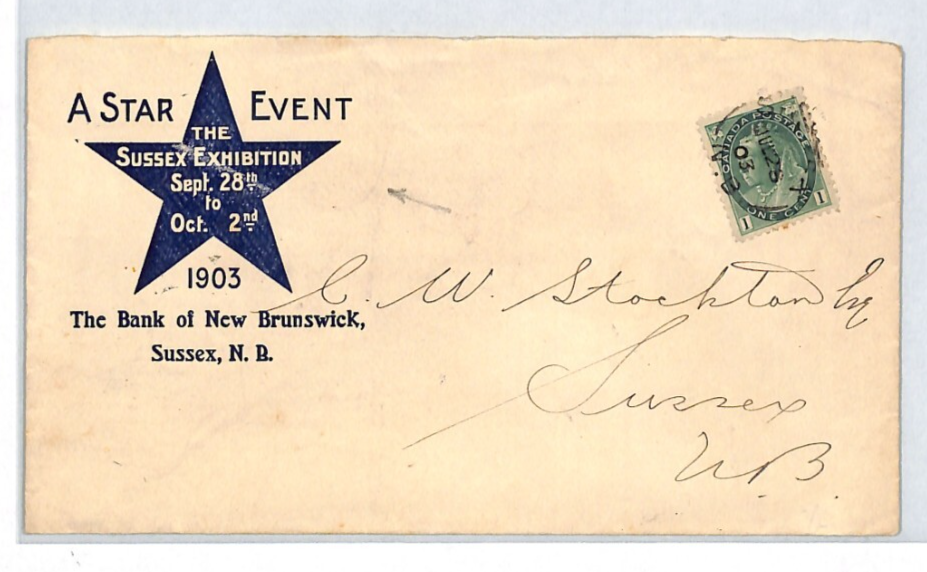 A STAR EVENT
THE
SUSSEX EXHIBITION
Sept. 28th
to
Oct. 2nd
1903
The Bank of New Brunswick,
Sussex, N. B.
CANADA POSTAGE
1 ONE CENT 1
JUL 25
03
N. B
C. W. Stockton Esq
Sussex
N.B.